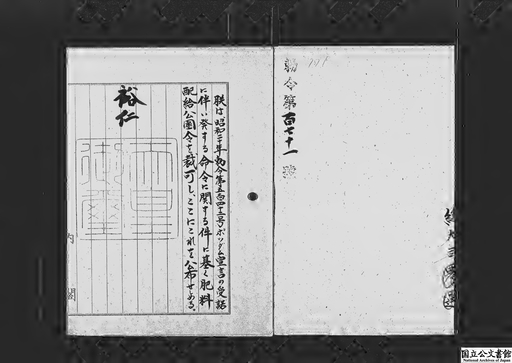 勅令第百七十一號
朕は昭和二十年勅令第五百四十二号ポツダム宣言の受諾
に伴い発する命令に関する件に基く肥料
配給公団令を裁可し、ここにこれを公布せしめる。
裕仁
内閣
国立公文書館
National Archives of Japan